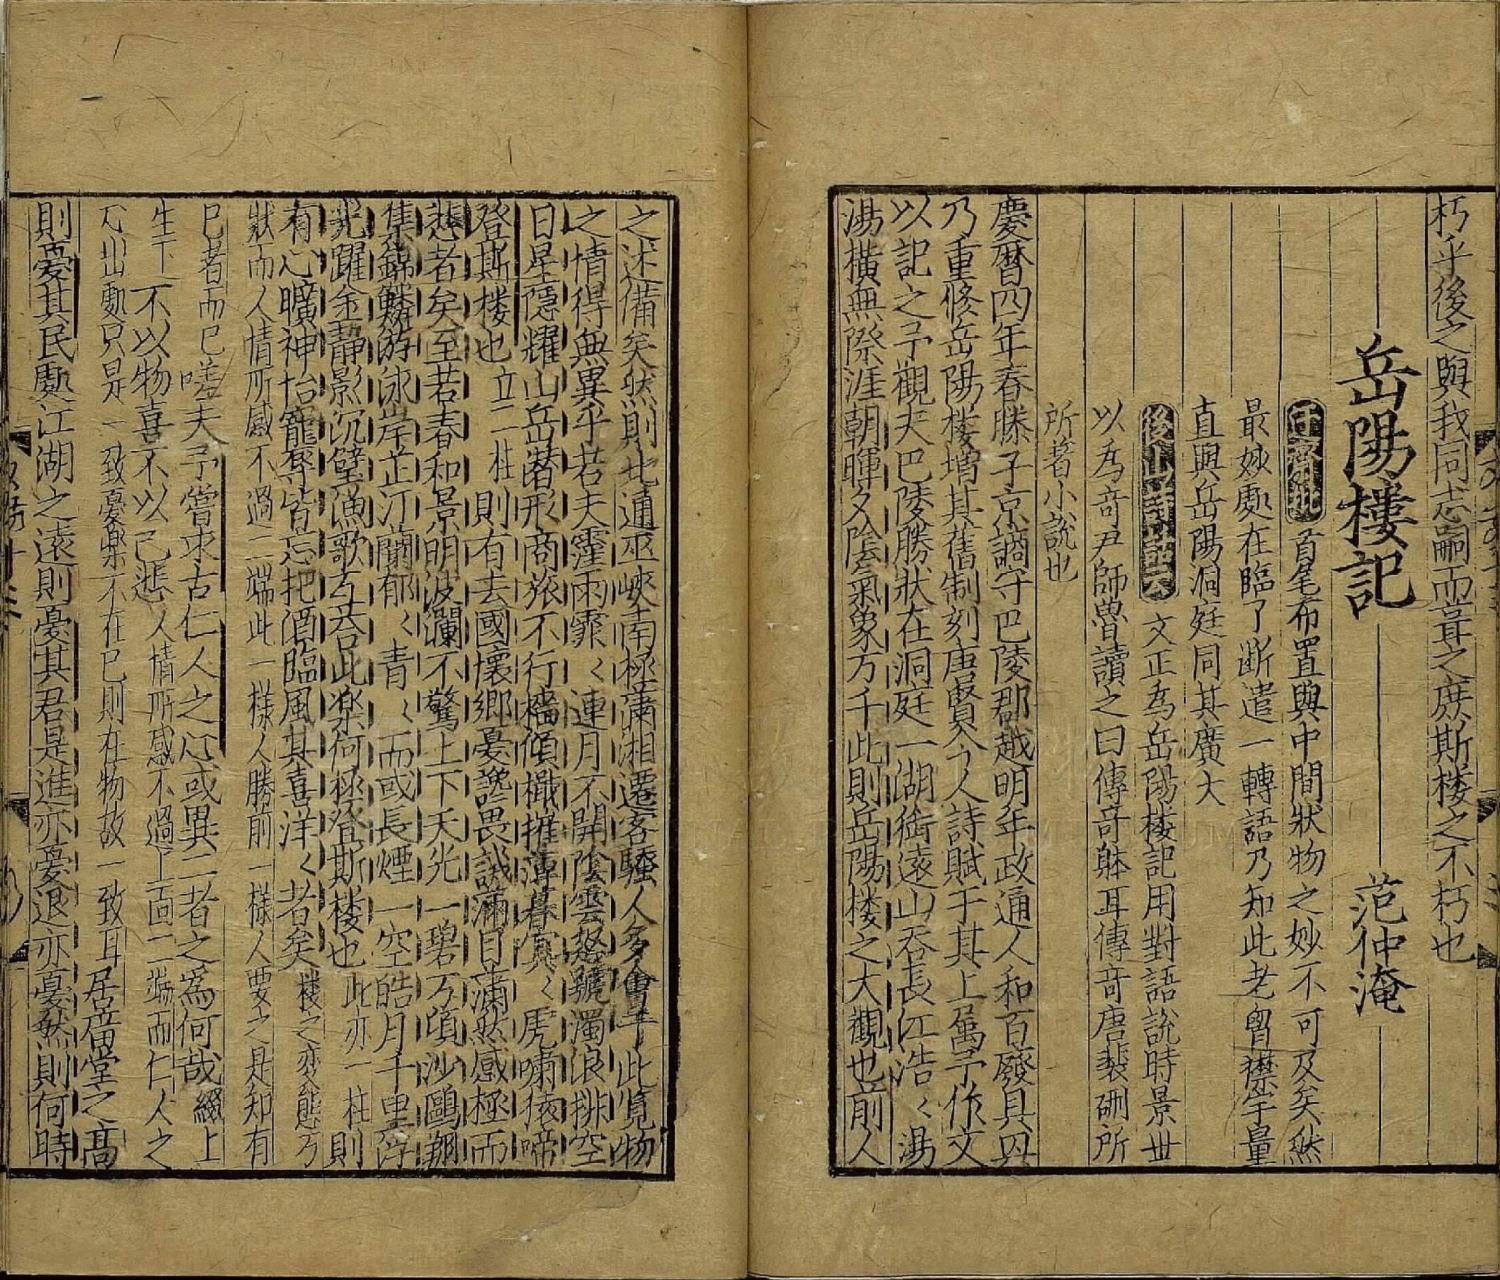 朽乎後之與我同志嗣而葺之庶斯楼之不朽也
岳陽樓記 范仲淹
首尾布置與中間狀物之妙不可及矣然
最妙處在臨了断遣一轉語乃知此老胷襟宇量
直與岳陽洞庭同其廣大
後山詩話云 文正為岳陽楼記用對語說時景世
以為奇尹師魯讀之曰傳奇躰耳傳奇唐裴硎所
所著小說也
慶曆四年春滕子京謫守巴陵郡越明年政通人和百廢具興
乃重修岳陽楼增其舊制刻唐賢今人詩賦于其上屬予作文
以記之予觀夫巴陵勝狀在洞庭一湖銜遠山吞長江浩〻湯
湯横無際涯朝暉夕陰氣象万千此則岳陽楼之大觀也前人
之述備矣然則北通巫峽南極瀟湘遷客騷人多會于此覧物
之情得無異乎若夫霪雨霏〻連月不開陰雲怒號濁浪排空
日星隠耀山岳潜形商旅不行檣傾檝摧薄暮冥〻虎嘯猿啼
登斯楼也 立二柱 則有去國懷鄉憂讒畏譏滿目蕭然感極而
悲者矣至若春和景明波瀾不驚上下天光一碧万頃沙鷗翔
集錦鱗游泳岸芷汀蘭郁〻青〻而或長煙一空皓月千里浮
光躍金静影沉璧漁歌互荅此楽何極登斯楼也 此亦一柱 則
有心曠神怡寵辱皆忘把酒臨風其喜洋〻者矣 楼之变態乃
狀而人情所感不過二端此一様人勝前一様人要之是知有
已者而已 嗟夫予嘗求古仁人之心或異二者之為何哉 綴上
生下 不以物喜不以己悲 人情所感不過上面二端而仁人之
心出處只是一致憂楽不在已則在物故一致耳 居庿堂之髙
則憂其民處江湖之遠則憂其君是進亦憂退亦憂然則何時